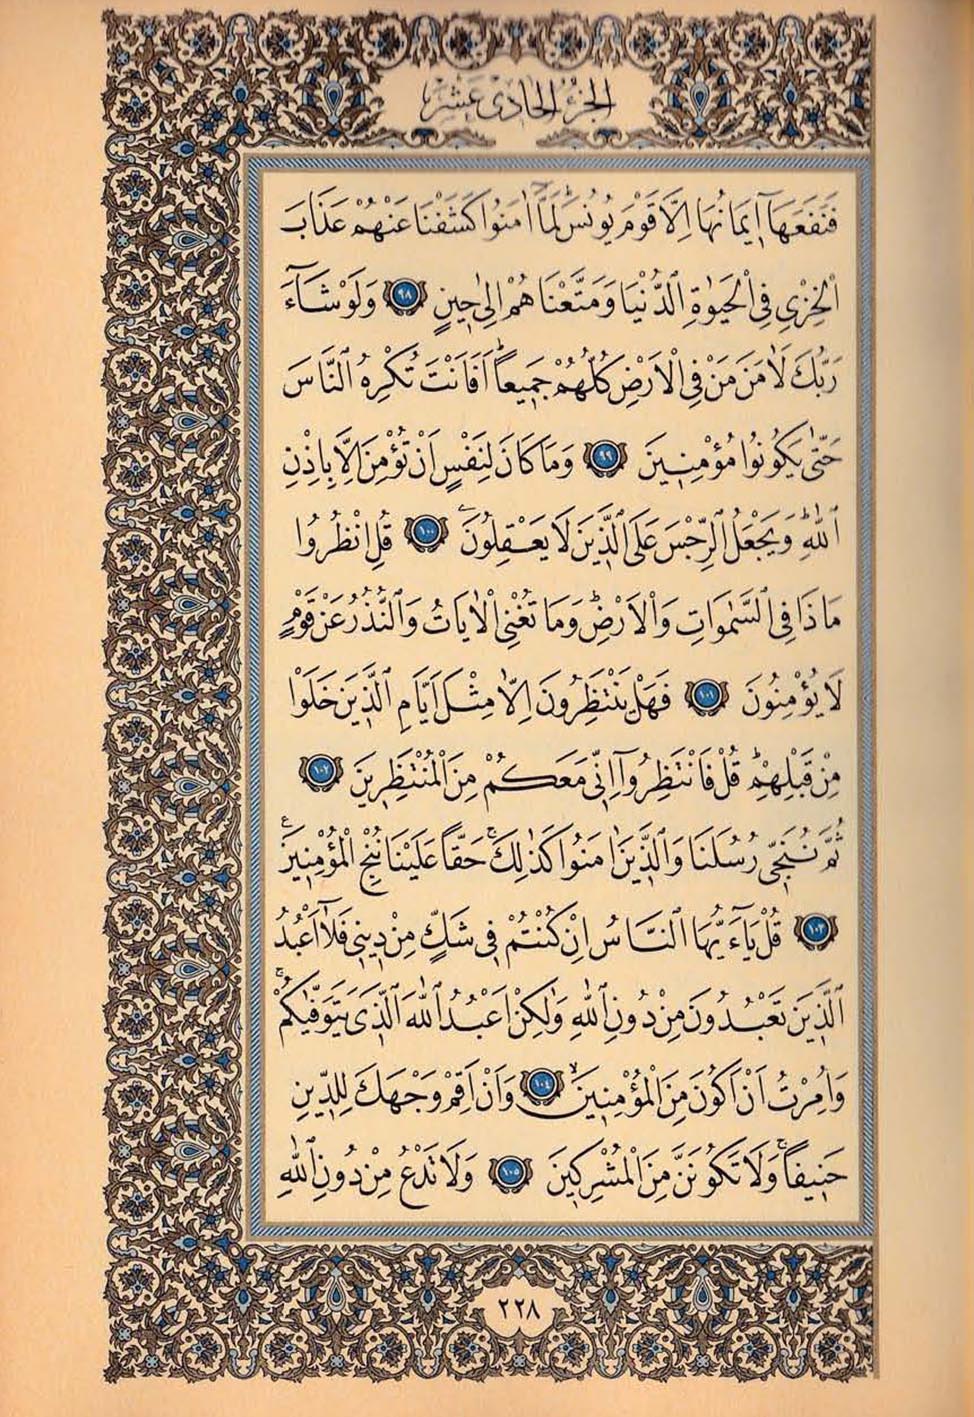 الجزء الحادى عشر
فَنَفَعَهَٓا ا۪يمَانُهَٓا اِلَّا قَوْمَ يُونُسَۜ لَمَّٓا اٰمَنُوا كَشَفْنَا عَنْهُمْ عَذَابَ
الْخِزْيِ فِي الْحَيٰوةِ الدُّنْيَا وَمَتَّعْنَاهُمْ اِلٰى ح۪ينٍ ٩٨ وَلَوْ شَٓاءَ
رَبُّكَ لَاٰمَنَ مَنْ فِي الْاَرْضِ كُلُّهُمْ جَم۪يعًاۜ اَفَاَنْتَ تُكْرِهُ النَّاسَ
حَتّٰى يَكُونُوا مُؤْمِن۪ينَ ٩٩ وَمَا كَانَ لِنَفْسٍ اَنْ تُؤْمِنَ اِلَّا بِاِذْنِ
اللّٰهِۜ وَيَجْعَلُ الرِّجْسَ عَلَى الَّذ۪ينَ لَا يَعْقِلُونَ ١٠٠ قُلِ انْظُرُوا
مَاذَا فِي السَّمٰوَاتِ وَالْاَرْضِۜ وَمَا تُغْنِي الْاٰيَاتُ وَالنُّذُرُ عَنْ قَوْمٍ
لَا يُؤْمِنُونَ ١٠١ فَهَلْ يَنْتَظِرُونَ اِلَّا مِثْلَ اَيَّامِ الَّذ۪ينَ خَلَوْا
مِنْ قَبْلِهِمْۜ قُلْ فَانْتَظِرُٓوا اِنّ۪ي مَعَكُمْ مِنَ الْمُنْتَظِر۪ينَ ١٠٢
ثُمَّ نُنَجّ۪ي رُسُلَنَا وَالَّذ۪ينَ اٰمَنُوا كَذٰلِكَۚ حَقًّا عَلَيْنَا نُنْجِ الْمُؤْمِن۪ينَ۟
١٠٣ قُلْ يَٓا اَيُّهَا النَّاسُ اِنْ كُنْتُمْ ف۪ي شَكٍّ مِنْ د۪ين۪ي فَلَٓا اَعْبُدُ
الَّذ۪ينَ تَعْبُدُونَ مِنْ دُونِ اللّٰهِ وَلٰكِنْ اَعْبُدُ اللّٰهَ الَّذ۪ي يَتَوَفّٰيكُمْۚ
وَاُمِرْتُ اَنْ اَكُونَ مِنَ الْمُؤْمِن۪ينَۙ ١٠٤ وَاَنْ اَقِمْ وَجْهَكَ لِلدّ۪ينِ
حَن۪يفًاۚ وَلَا تَكُونَنَّ مِنَ الْمُشْرِك۪ينَ ١٠٥ وَلَا تَدْعُ مِنْ دُونِ اللّٰهِ
٢٢٨